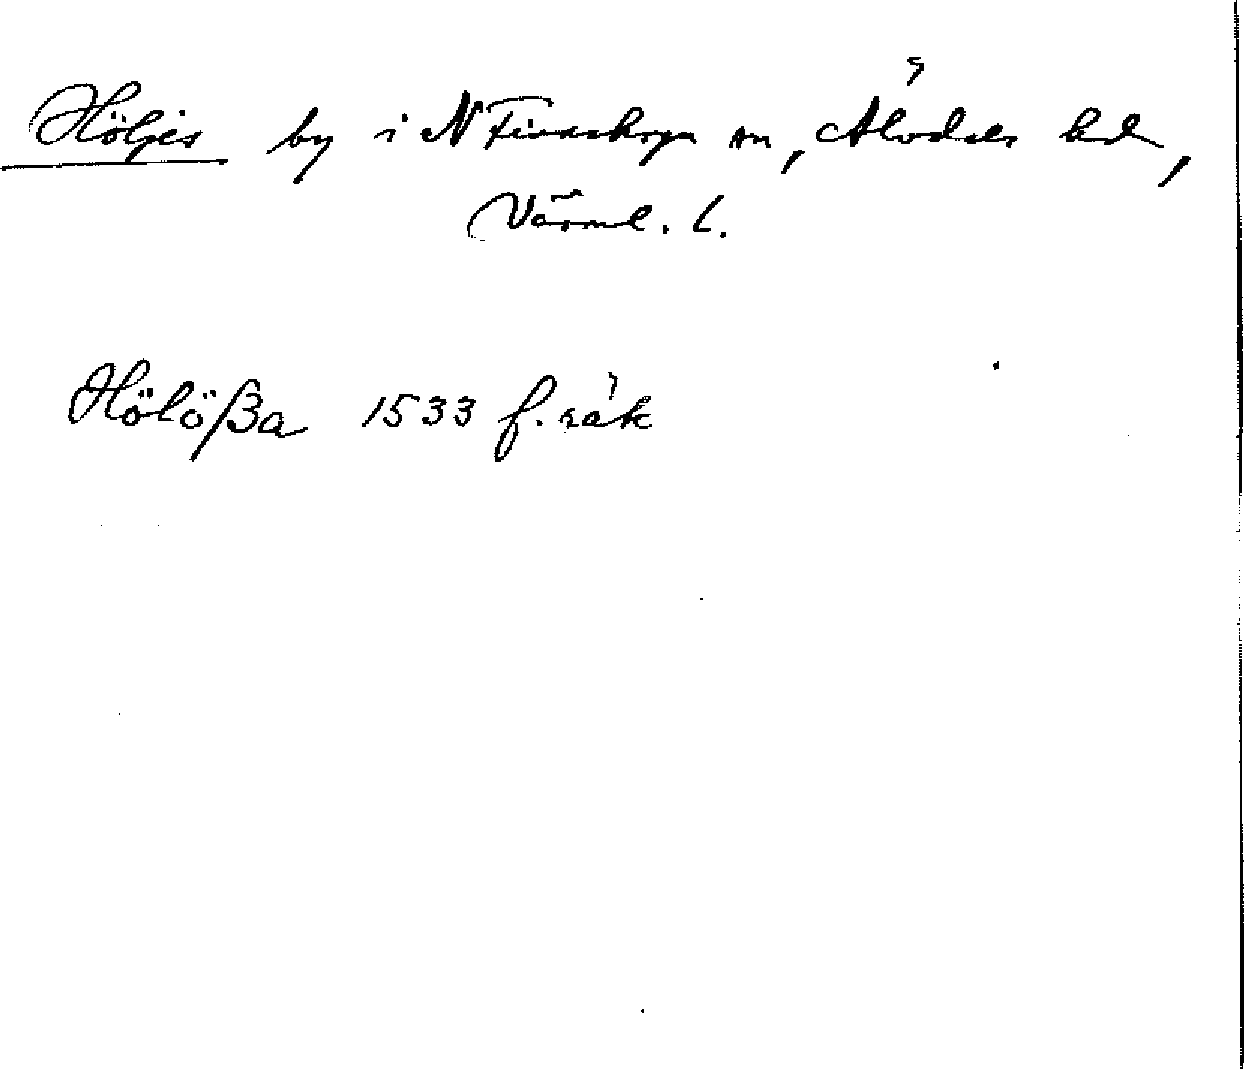 Höljes by i N Finnskoga sn, Älvdals hd,
Värml. l.
Hölößa 1533 f. räk